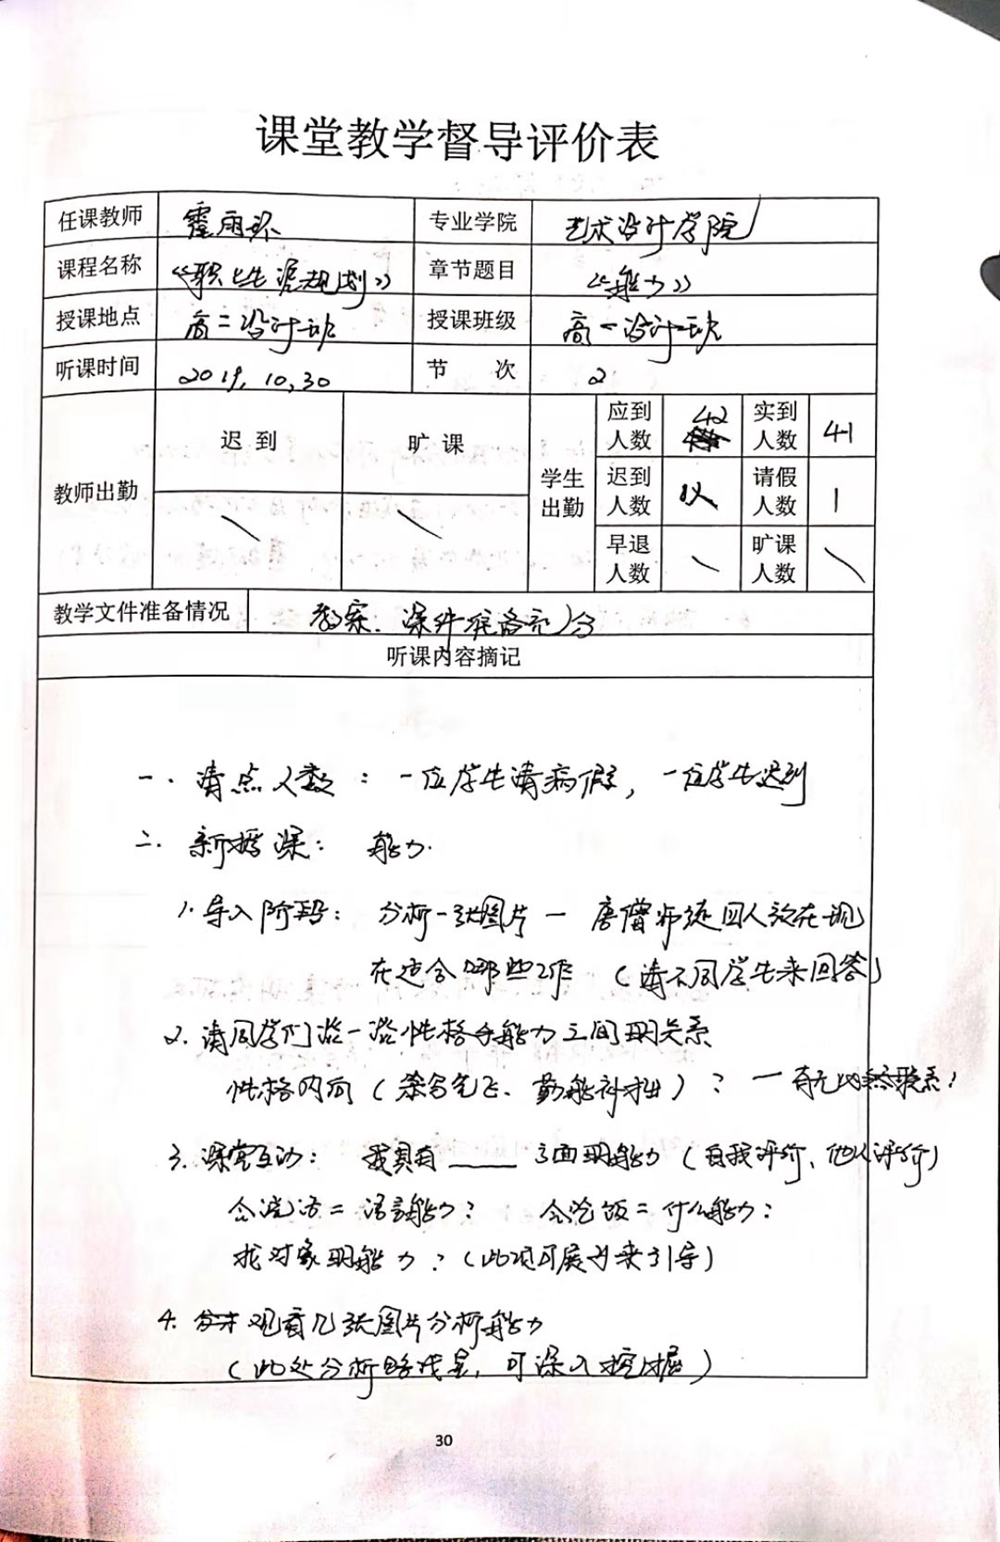 课堂教学督导评价表
任课教师 霍雨环 专业学院 艺术设计学院
课程名称 《职业生涯规划》 章节题目 《能力》
授课地点 高二设计一班 授课班级 高一设计一班
听课时间 2019.10.30 节 次 2
教师出勤 迟到 旷课 学生出勤 应到人数 42 实到人数 41
迟到人数 请假人数 1
早退人数 \ 旷课人数 \
教学文件准备情况 教案、课件准备充分
听课内容摘记
一. 请点人数：一位学生请病假，一位学生迟到
二. 新授课： 能力.
1. 导入阶段： 分析一张图片 — 唐僧师徒四人放在现
在适合哪些工作 （请不同学生来回答）
2. 请同学们谈一谈性格和能力之间的关系
性格内向（笨鸟先飞、勤能补拙）？ —
3. 课堂互动： 我具有 ____ 方面的能力（自我评价、他人评价）
会说话=语言能力？ 会吃饭=什么能力？
找对象的能力？（此项可展开来引导）
4. 观看几张图片分析能力
（此处分析略浅显，可深入挖掘）
30